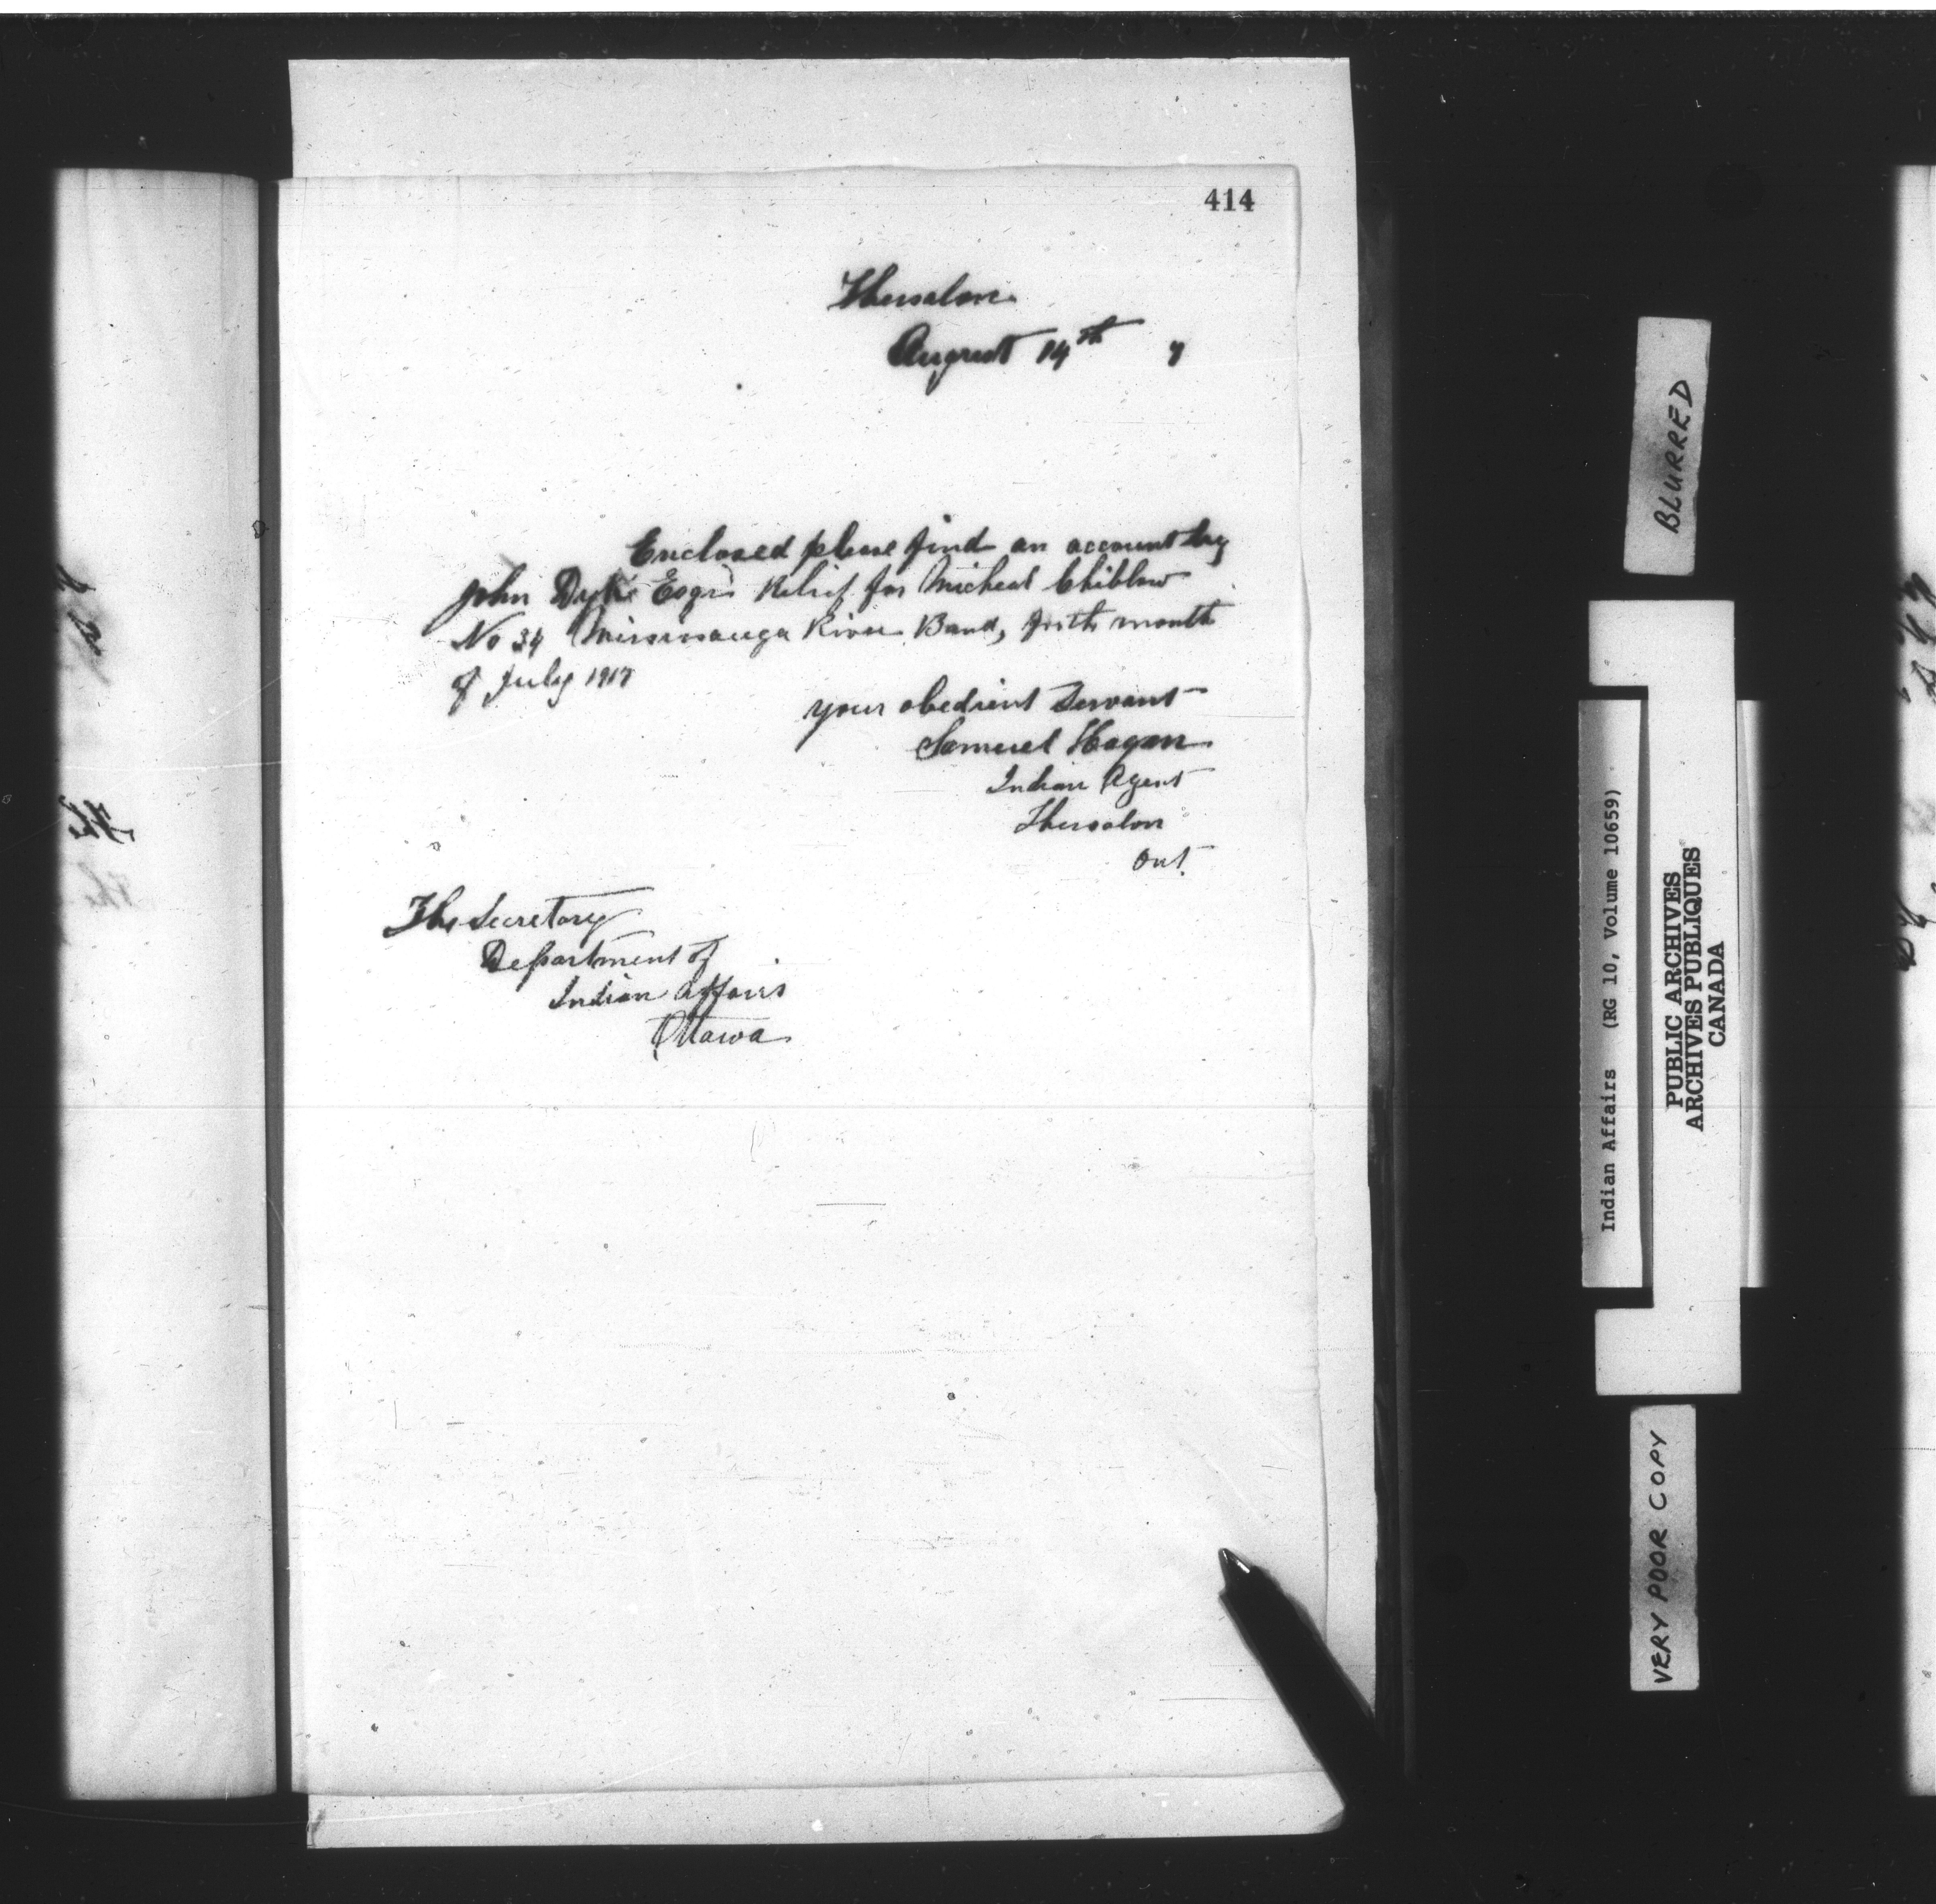 414
Thessalon
August 14th 7
Enclosed please find an account by
John Dyke Esqr Relief for Micheal Chiblow
No 34 Mississauga River Band, for the month
of July 1917
your obedient Servant
Samuel Hagan
Indian Agent
Thessalon
Ont.
The Secretary
Department of
Indian Affairs
Ottawa
BLURRED
Indian Affairs (RG 10, Volume 10659)
PUBLIC ARCHIVES
ARCHIVES PUBLIQUES
CANADA
VERY POOR COPY